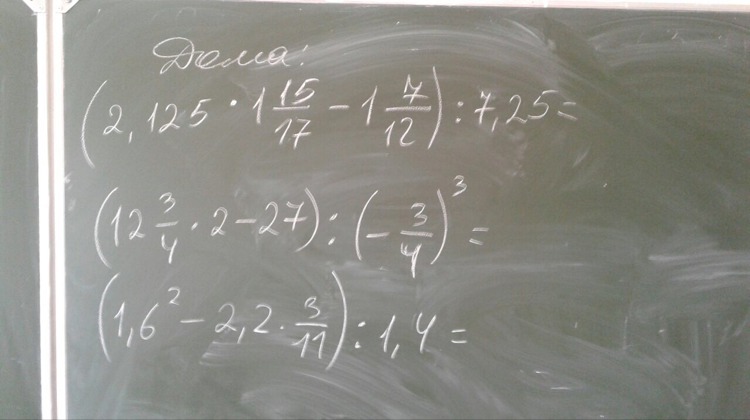 Дома:
(2,125 · 1 15/17 − 1 7/12) : 7,25 =
(12 3/4 · 2 − 27) : (− 3/4)³ =
(1,6² − 2,2 · 3/11) : 1,4 =